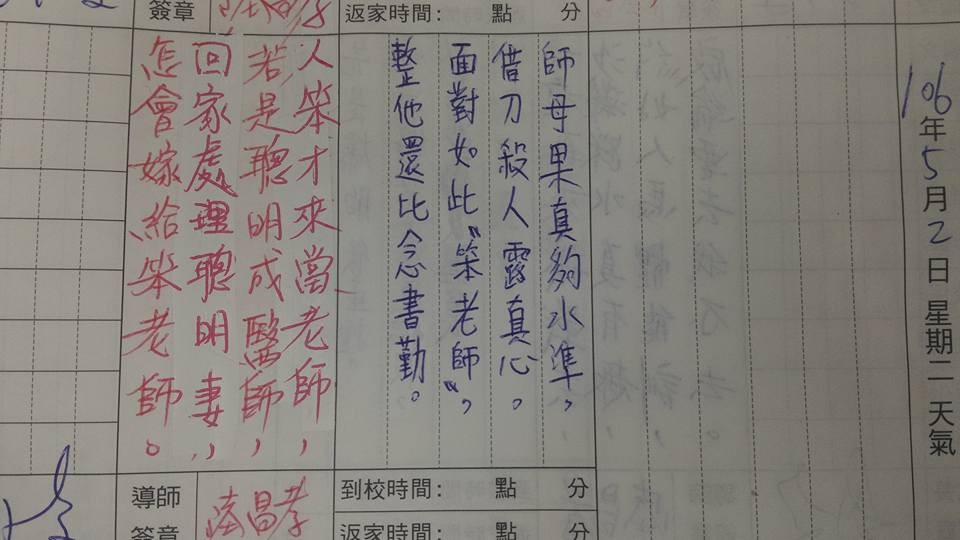 106年5月2日 星期二 天氣
師母果真夠水準，
借刀殺人露真心。
面對如此〝笨老師〞，
整他還比念書勤。
返家時間： 點 分
到校時間： 點 分
返家時間： 點 分
簽章
人笨才來當老師，
若是聰明成醫師，
回家處理聰明妻，
怎會嫁給笨老師。
導師
簽章
昌孝